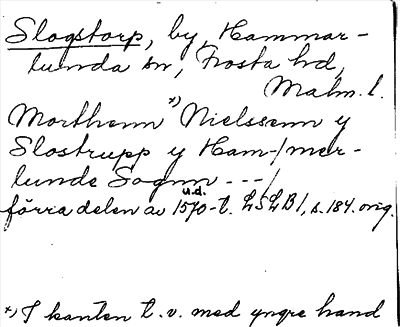 Slogstorp, by, Hammar-
lunda sn, Frosta hd,
Malm. l.
Morthenn *) Nielssenn y
Slostrupp y Ham-/mer-
lunde Sognn ---/
u.d.
förra delen av 1570-t. LSLB 1, s. 184. orig.
*) I kanten t. v. med yngre hand